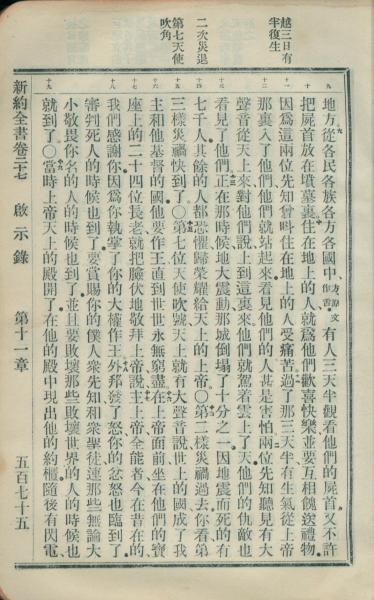 越三日有
半復生
二次災退
第七天使
吹角
地方從各民各族各方各國中方原文作舌有人三天半觀看他們的屍首又不許
把屍首放在墳墓裏住在地上的人就爲他們歡喜快樂並要互相餽送禮物
因爲這兩位先知曾叫住在地上的人受痛苦過了那三天半有生氣從上帝
那裏入了他們他們就站起來看見他們的人甚是害怕兩位先知聽見有大
聲音從天上來對他們說上到這裏來他們就駕着雲上了天他們的仇敵也
看見了他們正在那時候地大震動那城倒塌了十分之一因地震而死的有
七千人其餘的人都恐懼歸榮耀給天上的上帝〇第二樣災禍過去你看第
三樣災禍快到了〇第七位天使吹號天上就有大聲音說世上的國成了我
主和他基督的國他要作王直到世世永無窮盡在上帝面前坐在他們的寶
座上的二十四位長老就把臉伏地敬拜上帝說主上帝全能者今在昔在的
我們感謝你因爲你執掌了你的大權作王外邦發了怒你的忿怒也臨到了
審判死人的時候也到了要賞賜你的僕人衆先知和衆聖徒連那些無論大
小敬畏你名的人的時候也到了並且要敗壞那些敗壞世界的人的時候也
就到了〇當時上帝天上的殿開了在他的殿中現出他的約櫃隨後有閃電
新約全書卷二十七 啟示錄 第十一章 五百七十五